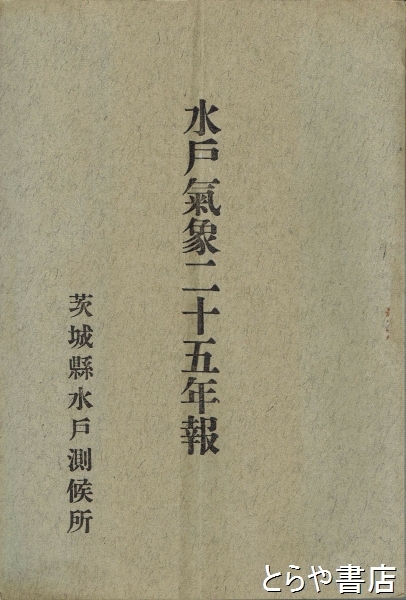 水戸氣象二十五年報
茨城縣水戸測候所
とらや書店